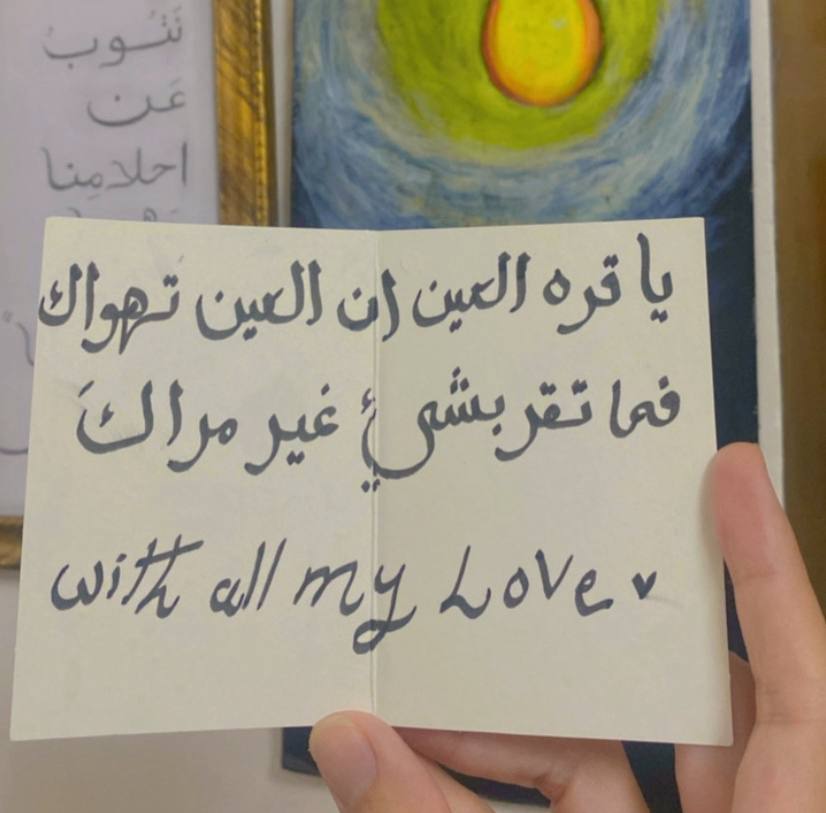 نَتُوبُ
عَن
احلامِنا
يا قره العين ان العين تهواك
فما تقر بشيئ غير مراكَ
with all my Love ♥